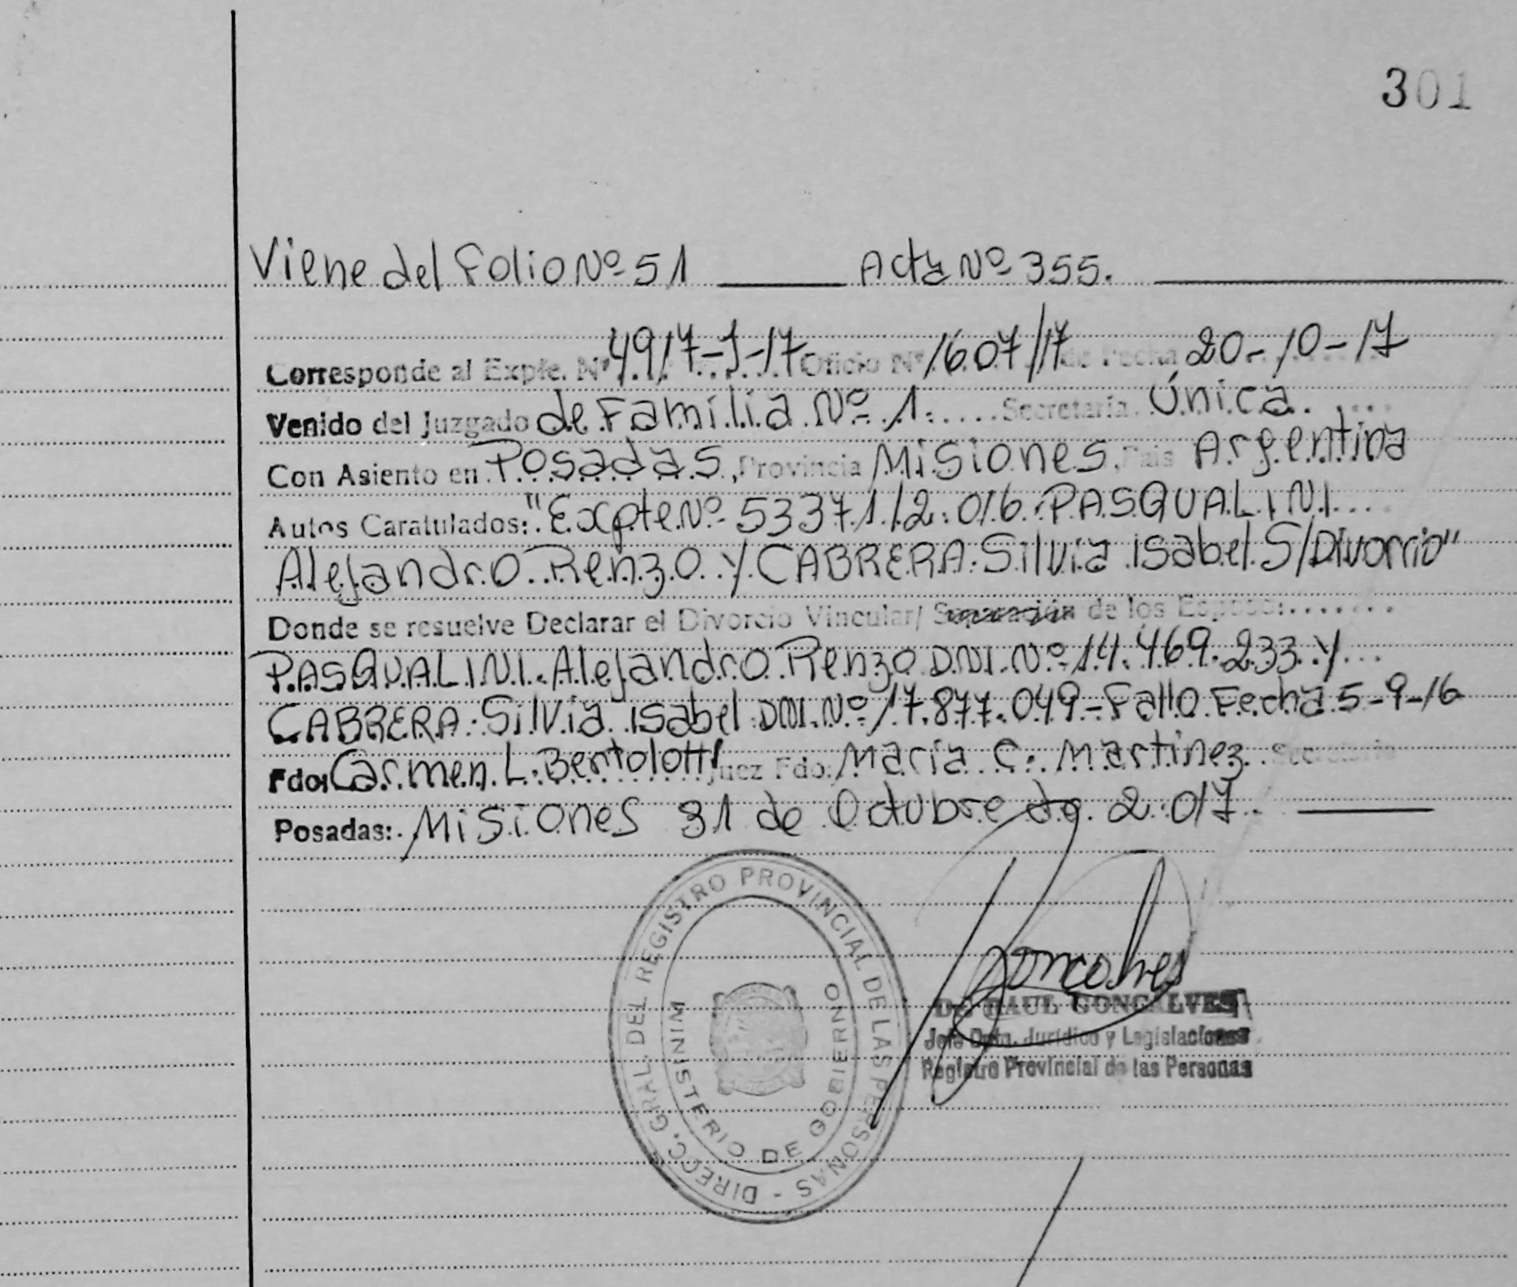 301
Viene del Folio Nº 51 ______ Acta Nº 355. ______
Corresponde al Expte. Nº 4917-J-17 Oficio Nº 1607/17 de Fecha 20-10-17
Venido del Juzgado de Familia Nº 1. .... Secretaría. Única. ...
Con Asiento en Posadas, Provincia Misiones, País Argentina
Autos Caratulados: "Expte Nº 53371/2.016. PASQUALINI....
Alejandro Renzo y CABRERA. Silvia Isabel S/Divorcio"
Donde se resuelve Declarar el Divorcio Vincular/ Separación de los Esposos:.......
PASQUALINI. Alejandro Renzo DNI. Nº 14.469.233 y...
CABRERA. Silvia Isabel DNI. Nº 17.877.049-Fallo Fecha 5-9-16
Fdo: Carmen. L. Bertolotti Juez Fdo: María C. Martinez. Secretaria
Posadas: Misiones 31 de Octubre de 2.017. ______
DIRECC. GRAL. DEL REGISTRO PROVINCIAL DE LAS PERSONAS -
MINISTERIO DE GOBIERNO
Goncalves
RAUL GONCALVES
Jefe Dpto. Jurídico y Legislaciones
Registro Provincial de las Personas